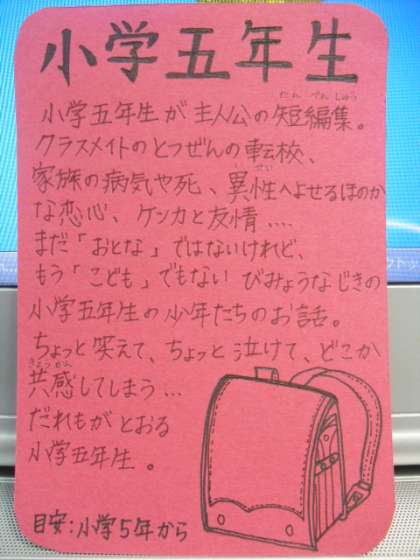 小学五年生
小学五年生が主人公の短編集。
クラスメイトのとつぜんの転校、
家族の病気や死、異性へよせるほのか
な恋心、ケンカと友情....
まだ「おとな」ではないけれど、
もう「こども」でもない びみょうなじきの
小学五年生の少年たちのお話。
ちょっと笑えて、ちょっと泣けて、どこか
共感してしまう...
だれもがとおる
小学五年生。
目安:小学5年から